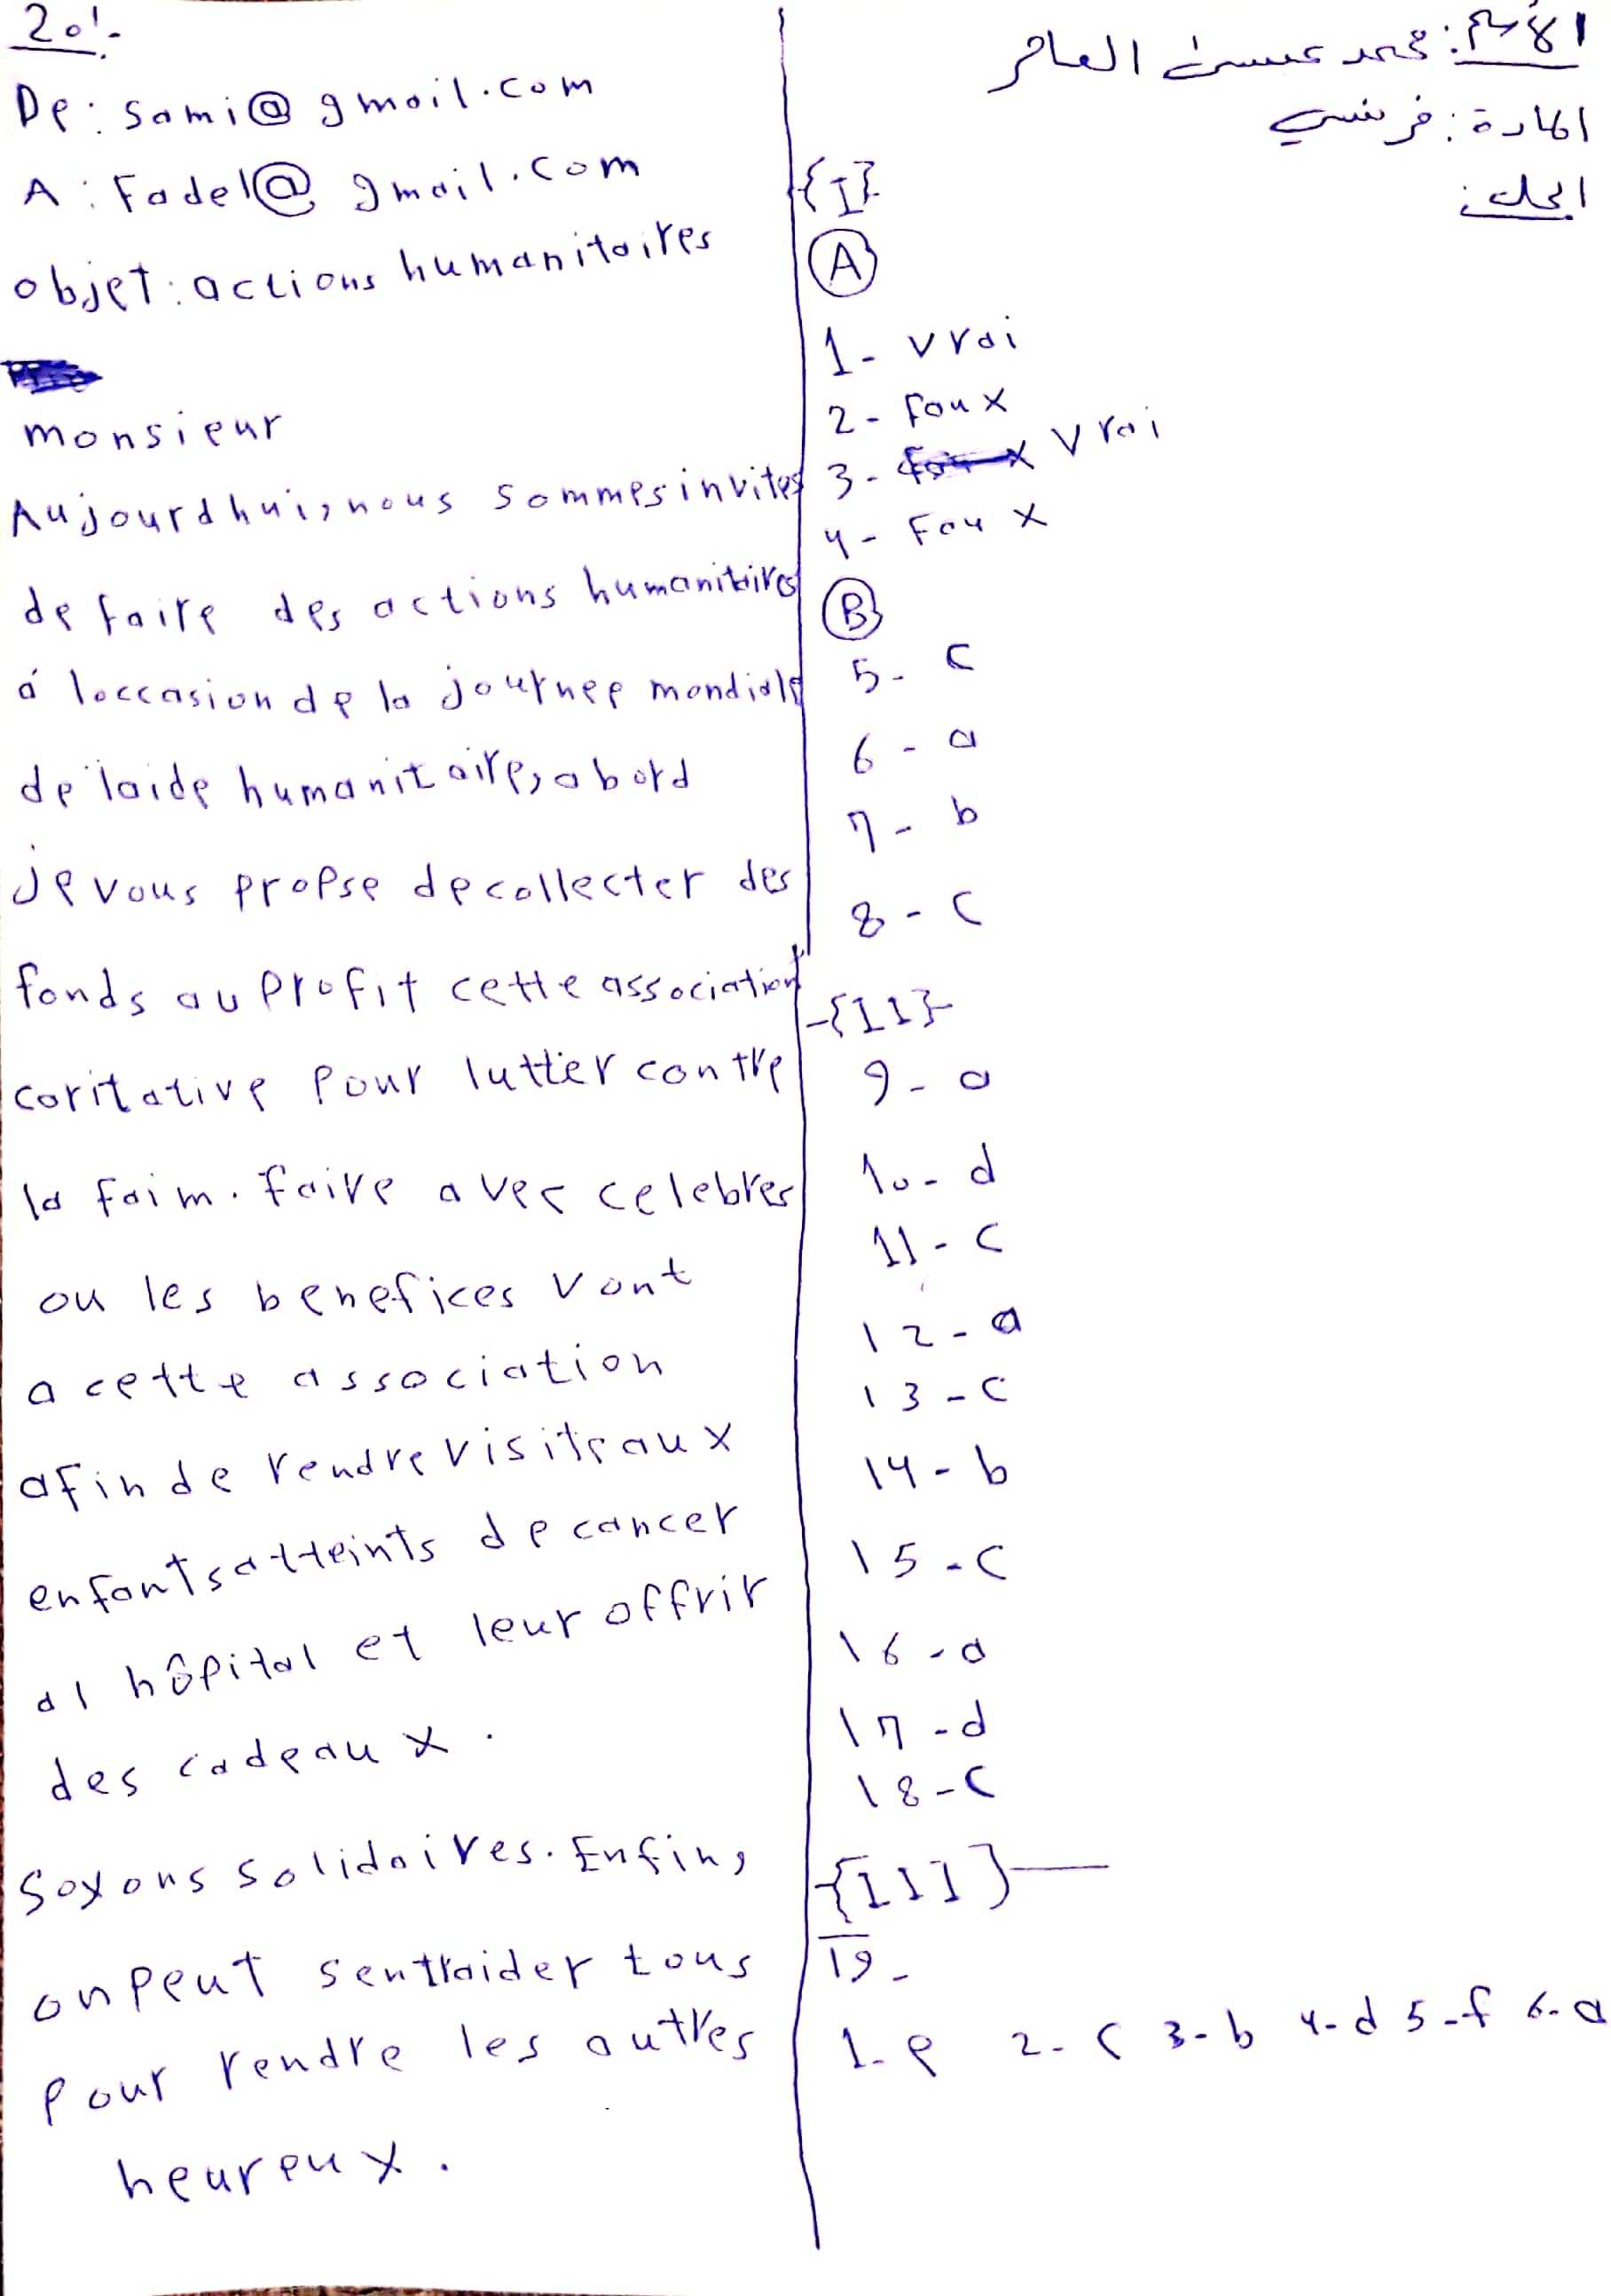 الأسم: محمد عيسى العامر
المادة: فرنسي
الحل:
{I}
A
1- vrai
2- faux
3- vrai
4- Faux
B
5- c
6- a
7- b
8- c
{II}
9- a
10- d
11- c
12- a
13- c
14- b
15- c
16- a
17- d
18- c
{III}
19-
1- e 2- c 3- b 4- d 5- f 6- a
20:-
De: sami@gmail.com
A: Fadel@gmail.com
objet: actions humanitaires
monsieur
Aujourdhui, nous sommes invites
de faire des actions humanitaires
á loccasion de la journee mondiale
de laide humanitaire, abord
je vous propse de collecter des
fonds au profit cette association
caritative pour lutter contre
la faim. faire avec celebres
ou les benefices vont
a cette association
afin de rendre visite aux
enfants atteints de cancer
al hôpital et leur offrir
des cadeaux.
Soyons solidaires. Enfin,
on peut sentraider tous
pour rendre les autres
heureux.